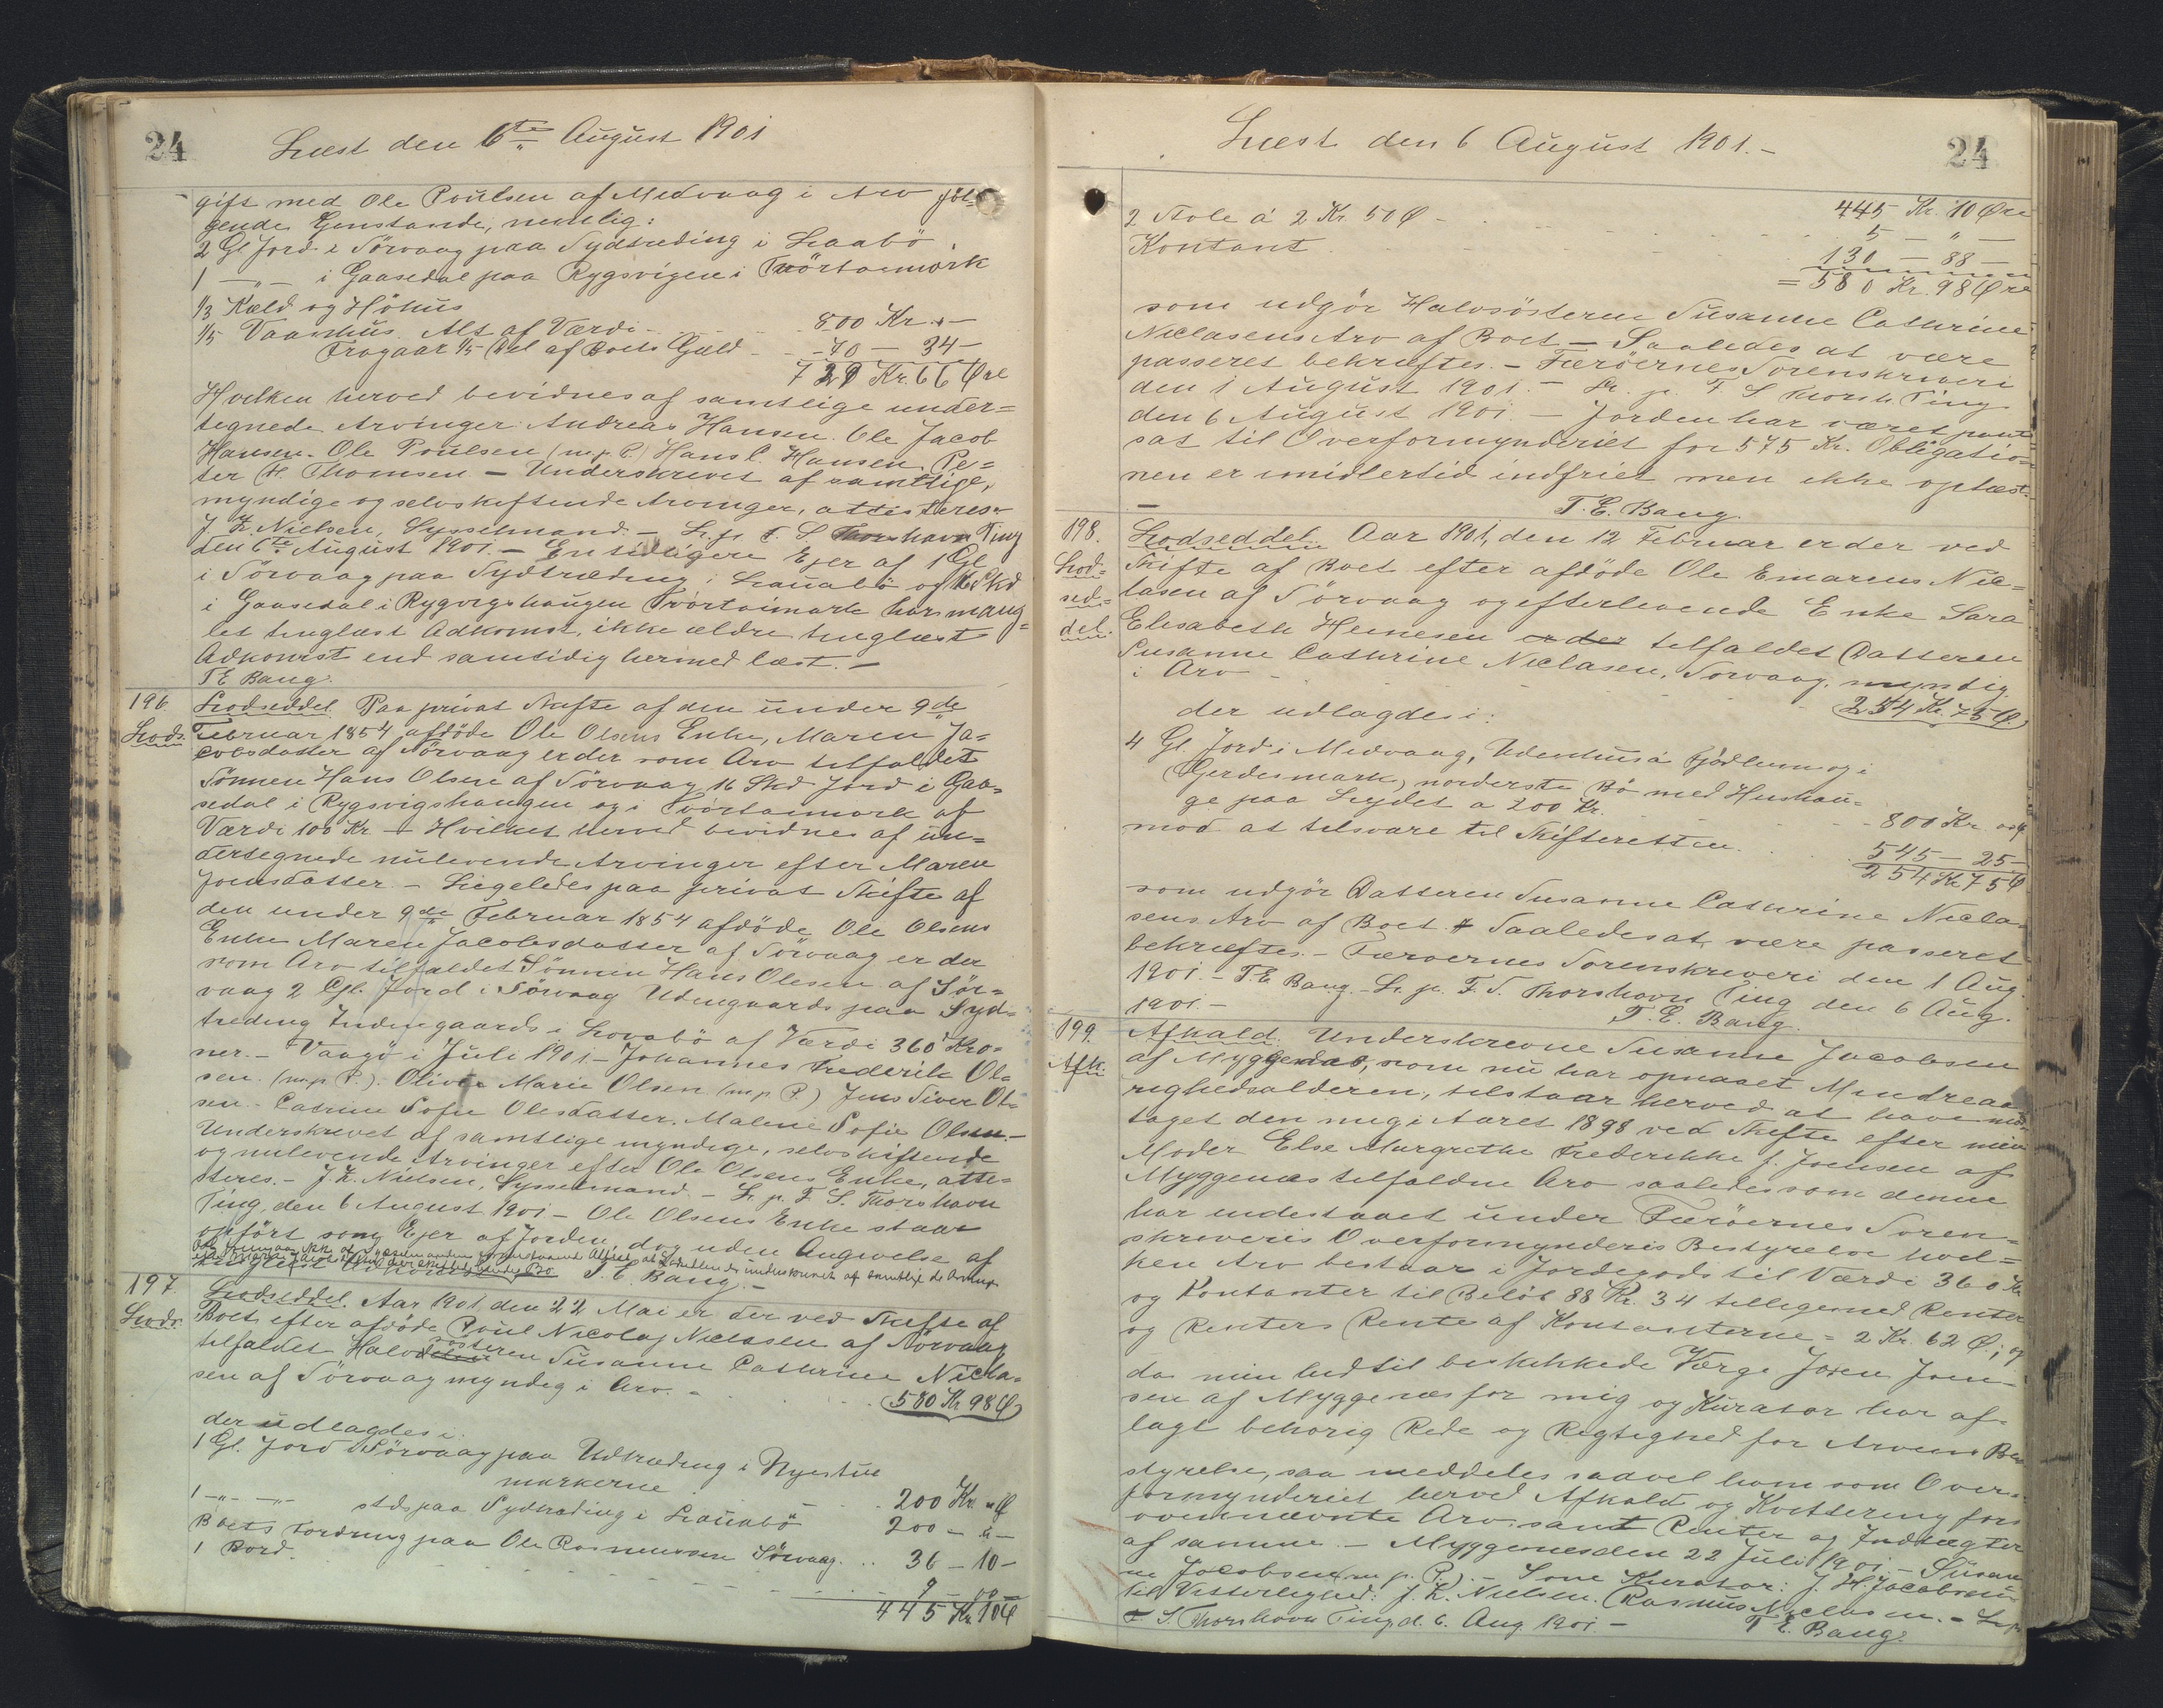 24
Læst den 6te August 1901
gift med Ole Poulsen af Midvaag i Arv føl-
gende Genstande, nemlig:
2 Gl Jord i Sörvaag paa Sydtræding i Laabö
1 — " — i Gaasedal paa Rygsvigen i Tvörtaimork
1/3 Kæld og Höhus
1/5 Vaanhus. Alt af Værdi - - - 800 Kr. " —
Fragaar 1/5 Del af Boets Gæld - - 70 — 34 —
729 Kr. 66 Øre
Hvilken herved bevidnes af samtlige under=
tegnede Arvinger: Andreas Hansen. Ole Jacob
Hansen. Ole Poulsen (m.p.P.) Hans C. Hansen. Pe=
ter H. Thomsen. — Underskrevet af samtlige,
myndige og selvskiftende Arvinger, attesteres.
J. K. Nielsen, Sysselmand. — L. p. F. S. Thorshavn Ting
den 6te August 1901. — En tidligere Ejer af 1 Gl
i Sörvaag paa Sydtræding i Lauabö og 16 Skd
i Gaasedal i Rygvigshaugen Tvörtaimark har mang=
let tinglæst Adkomst, ikke ældre tinglæst
Adkomst end samtidig hermed læst. —
T E Bang.
196. Lodseddel. Paa privat Skifte af den under 9de
Lods. Februar 1854 afdöde Ole Olsens Enke, Maren Ja=
cobsdatter af Sörvaag er der som Arv tilfaldet
Sönnen Hans Olsen af Sörvaag 16 Skd Jord i Gaa=
sedal i Rygsvigshaugen og i Tvörtaimork af
Værdi 100 Kr. — Hvilket herved bevidnes af un=
dertegnede nulevende Arvinger efter Maren
Joensdatter. — Ligeledes paa privat Skifte af
den under 9de Februar 1854 afdöde Ole Olsens
Enke Maren Jacobsdatter af Sörvaag er der
som Arv tilfaldet Sönnen Hans Olesen af Sör=
vaag 2 Gl. Jord i Sörvaag Udengaards paa Syd=
træding Indengaards i Lovabö af Værdi 360 Kro=
ner. — Vaagö i Juli 1901 — Johannes Frederik Ol=
sen. (m.p.P.). Olivia Marie Olsen (m.p.P.) Jens Siver Ol=
sen. Catrine Sofie Olesdatter. Malene Sofie Olsen. —
Underskrevet af samtlige myndige, selvskiftende
og nulevende Arvinger efter Ole Olsens Enke, atte=
steres. — J. K. Nielsen, Sysselmand — L. p. F. S. Thorshavn
Ting, den 6 August 1901 — Ole Olsens Enke staar
opfört som Ejer af Jorden, dog uden Angivelse af
tinglæst Adkomst T. E. Bang. —
197. Lodseddel. Aar 1901 den 22 Mai er der ved Skifte af
Lods. Boet efter afdöde Poul Nicolaj Niclasen af Sörvaag
tilfaldet Halvsösteren Susanne Cathrine Nicla=
sen af Sörvaag myndig i Arv. - - - 580 Kr 98 Ø
der udlagdes i:
1 Gl. Jord i Sörvaag paa Udtræding i Nyestue
markerne - - - 200 Kr. " Ø
1 — " — " — stds paa Sydtræding i Lauabö - 200 — " —
Boets Fordring paa Ole Rasmussen Sörvaag. . . 36 — 10 —
1 Bord. - - - 9 — 00 —
445 Kr. 10 Ø
Læst den 6 August 1901. —
24
445 Kr. 10 Øre
2 Stole á 2 Kr. 50 Ø - - - 5 — " —
Kontant - - - 130 — 88 —
= 580 Kr. 98 Øre
som udgör Halvsösteren Susanne Cathrine
Niclasens Arv af Boet — Saaledes at være
passeret bekræftes. — Færöernes Sorenskriveri
den 1 August 1901. — L. p. F S Thorsh. Ting
den 6 August 1901. — Jorden har været pant=
sat til Overformynderiet for 575 Kr. Obligatio=
nen er imidlertid indfriet men ikke oplæst.
—
T. E. Bang.
198. Lodseddel. Aar 1901, den 12 Februar er der ved
Lod= Skifte af Boet efter afdöde Ole Emareus Nic=
sed= lasen af Sörvaag og efterlevende Enke Sara
del. Elisabeth Heinesen er der tilfaldet Datteren
Susanne Cathrine Niclasen, Sörvaag, myndig
i Arv - - - 254 Kr. 75 Ø.
der udlagdes i:
4 Gl. Jord i Midvaag, Udenhus á Fjödlum og i
Gjerdismark, norderste Bö med Hushau=
ge paa Lydet a 200 Kr. - - 800 Kr. 00 Ø
mod at tilsvare til Skifteretten. . . . 545 — 25 —
254 Kr 75 Ø
som udgör Datteren Susanne Cathrine Nicla=
sens Arv af Boet. Saaledes at være passeret
bekræftes. — Færöernes Sorenskriveri den 1 Aug.
1901. — T. E. Bang. — L. p. F. S. Thorshavn Ting den 6 Aug.
1901. —
T. E. Bang.
199. Afkald. Underskrevne Susanne Jacobsen
Afk. af Myggenæs, som nu har opnaaet Myndig
righedsalderen, tilstaar herved at have mod=
taget den mig i Aaret 1898 ved Skifte efter min
Moder Else Margrethe Frederikke f. Joensen af
Myggenæs tilfaldne Arv saaledes som denne
har indestaaet under Færöernes Soren=
skriveris Overformynderis Bestyrelse hvil=
ken Arv bestaar i Jordegods til Værdi 360 Kr.
og Kontanter til Belöb 88 Kr. 34 tilligemed Renter
og Renters Rente af Kontanterne = 2 Kr. 62 Ø.; og
da min hidtil beskikkede Værge Joen Joen=
sen af Myggenæs for mig og Kurator har af=
lagt behörig Rede og Rigtighed for Arvens Be=
styrelse, saa meddeles saavel ham som Over=
formynderiet herved Afkald og Kvittering for
ovennævnte Arv samt Renter og Indtægter
af samme. — Myggenæs den 22 Juli 1901 — Susan
ne Jacobsen (m.p.P.). — Som Kurator: J. H. Jacobsen.
Til Vitterlighed: J. K. Nielsen. Rasmus Niclasen. — L. p.
F. S. Thorshavn Ting d. 6. Aug. 1901. — T E. Bang.